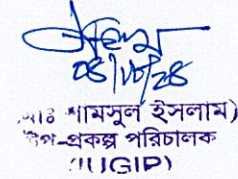 ০৪/১০/২৪
মোঃ শামসুল ইসলাম)
উপ-প্রকল্প পরিচালক
IUGIP)